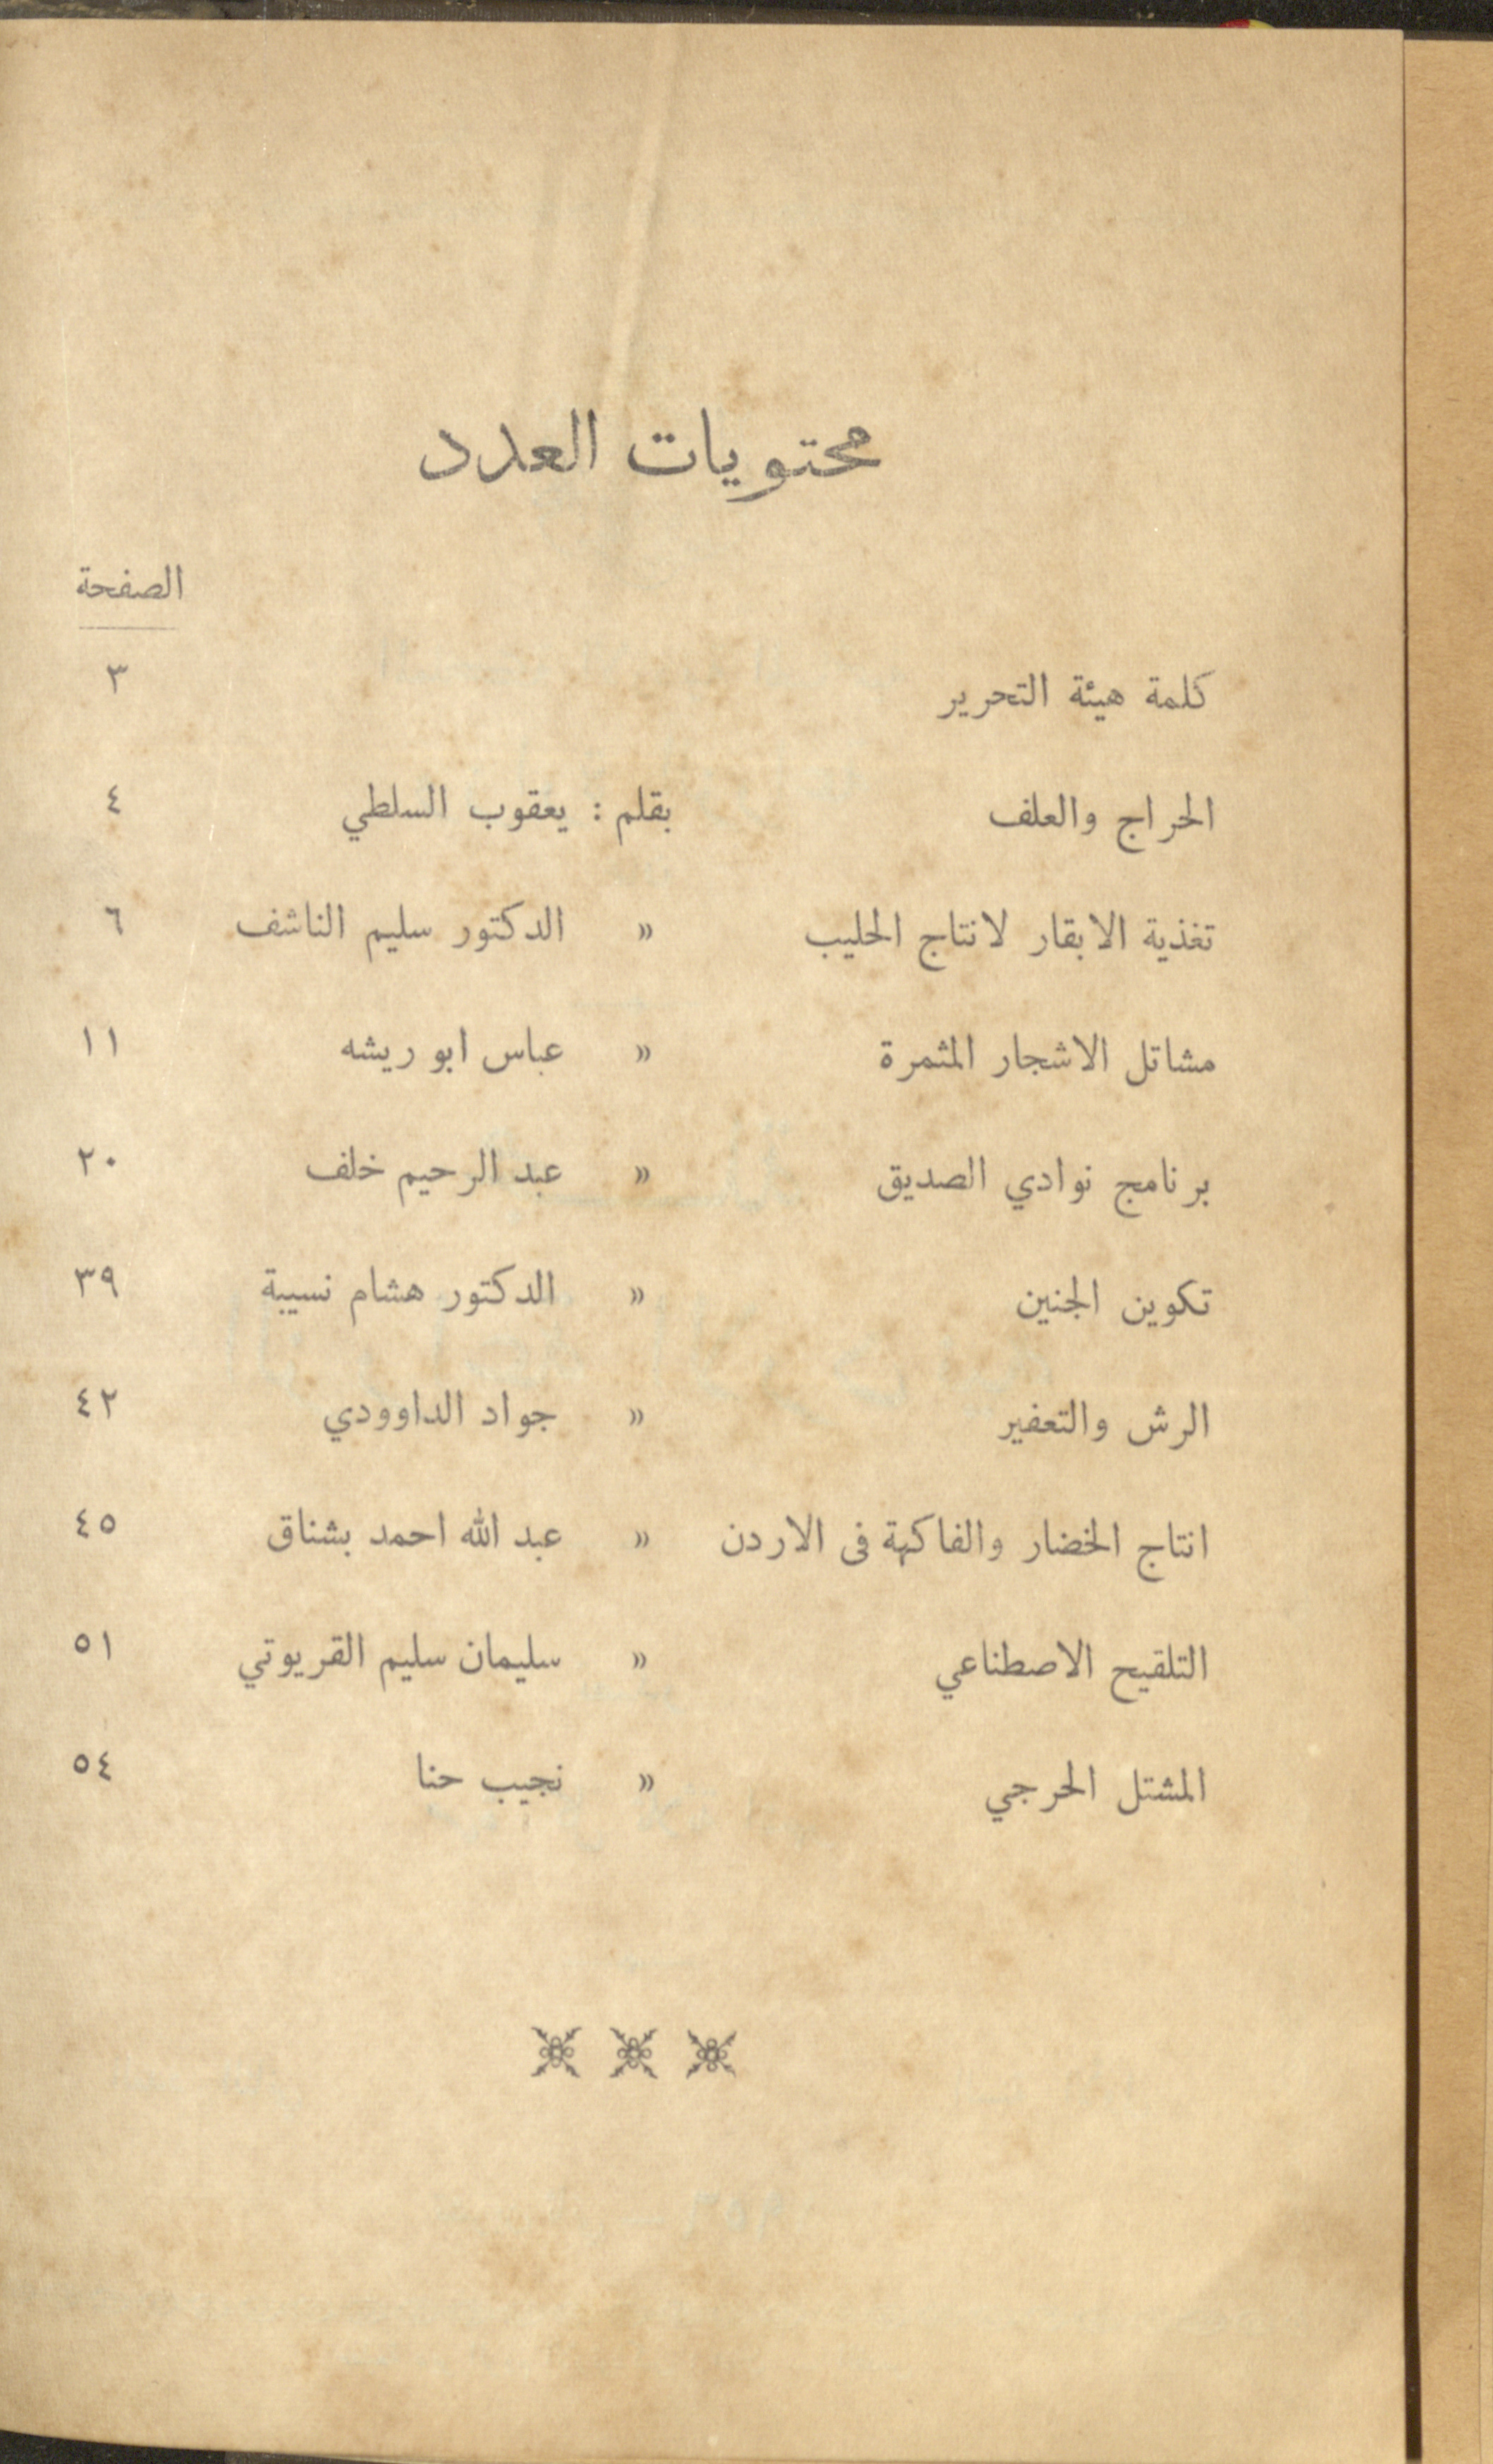 محتويات العدد
الصفحة
كلمة هيئة التحرير ٣
الحراج والعلف بقلم : يعقوب السلطي ٤
تغذية الابقار لانتاج الحليب » الدكتور سليم الناشف ٦
مشاتل الاشجار المثمرة » عباس ابو ريشه ١١
برنامج نوادي الصديق » عبد الرحيم خلف ٢٠
تكوين الجنين » الدكتور هشام نسيبة ٣٩
الرش والتعفير » جواد الداوودي ٤٢
انتاج الخضار والفاكهة فى الاردن » عبد الله احمد بشناق ٤٥
التلقيح الاصطناعي » سليمان سليم القريوتي ٥١
المشتل الحرجي » نجيب حنا ٥٤